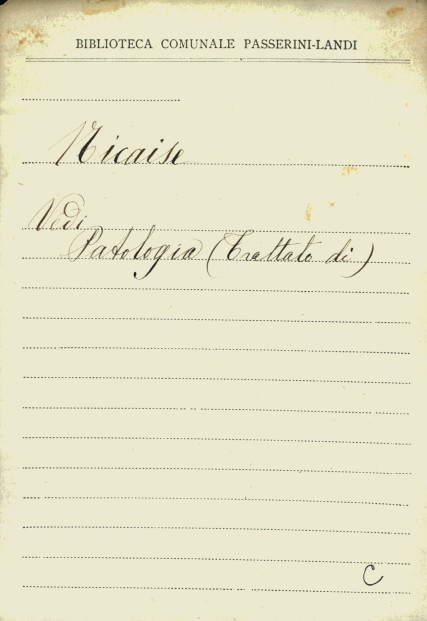 BIBLIOTECA COMUNALE PASSERINI-LANDI
Nicaise
Vedi
Patologia (Trattato di)
C